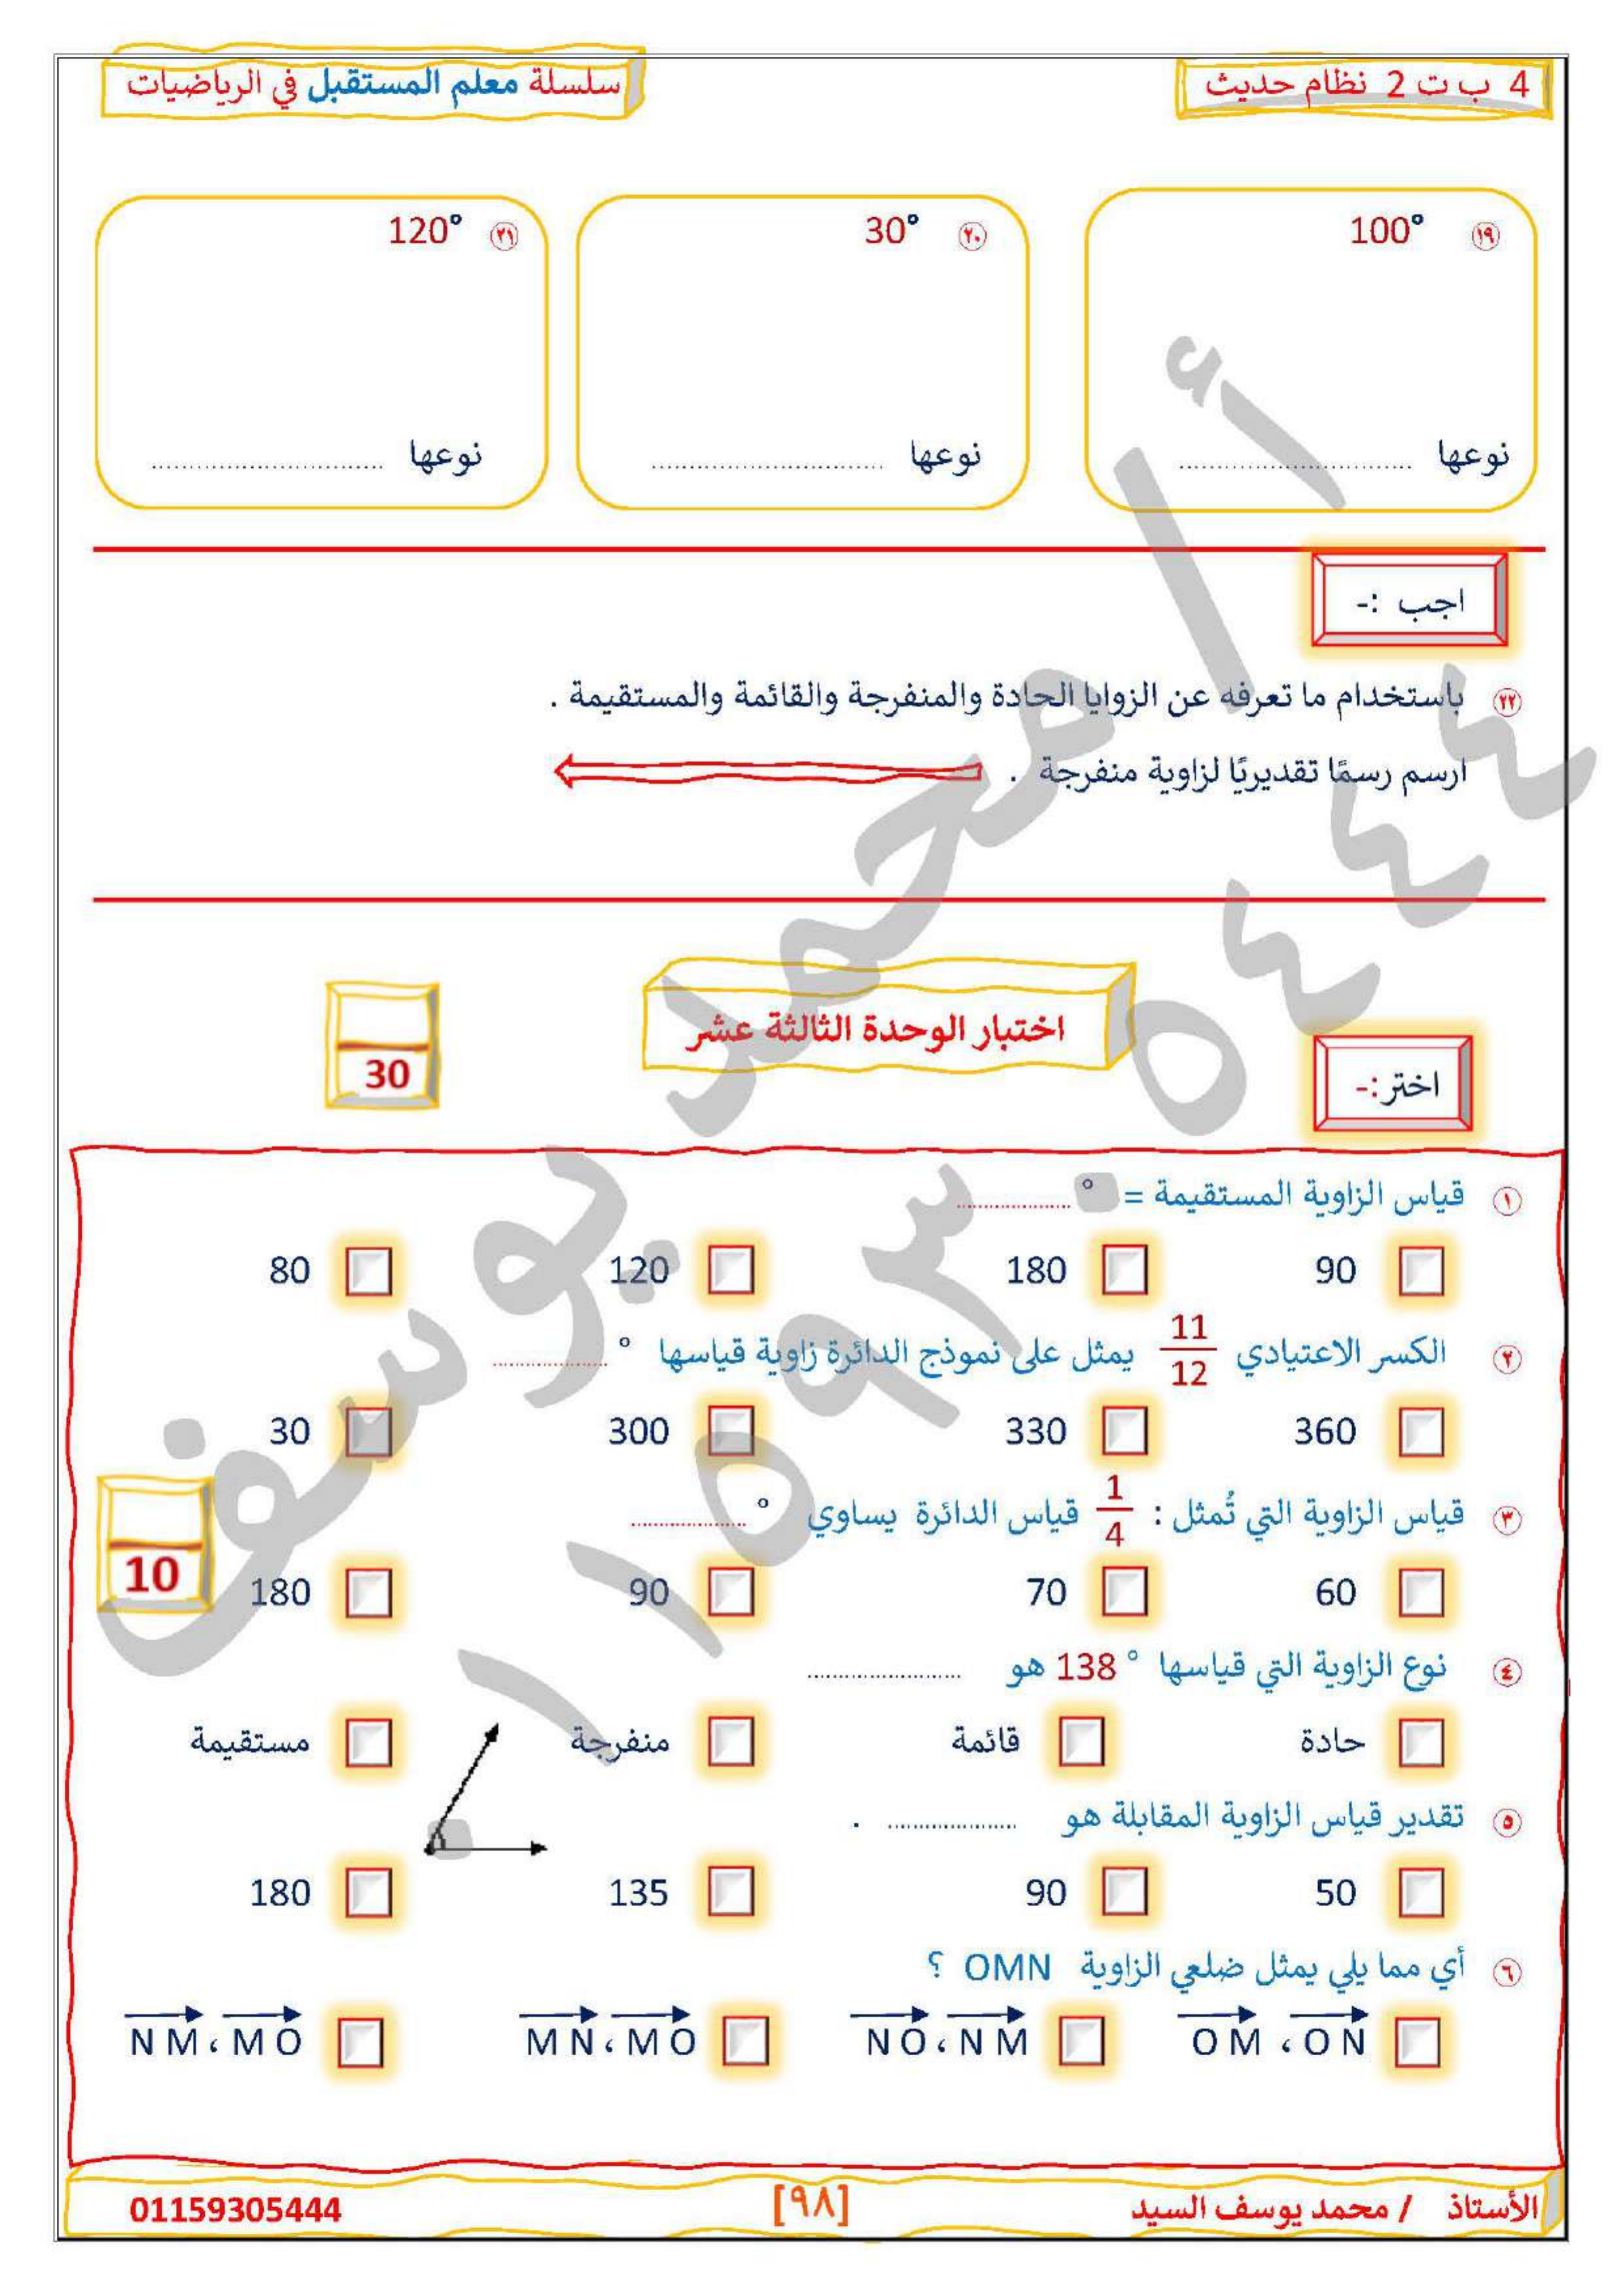 4 ب ت 2 نظام حديث
سلسلة معلم المستقبل في الرياضيات
١٩ 100°
٢٠ 30°
٢١ 120°
نوعها ..............................
نوعها ..............................
نوعها ..............................
اجب :-
٢٢ باستخدام ما تعرفه عن الزوايا الحادة والمنفرجة والقائمة والمستقيمة .
ارسم رسمًا تقديريًا لزاوية منفرجة .
اختبار الوحدة الثالثة عشر
30
اختر:-
١ قياس الزاوية المستقيمة = ° ....................
90 180 120 80
٢ الكسر الاعتيادي 11/12 يمثل على نموذج الدائرة زاوية قياسها ° ....................
360 330 300 30
٣ قياس الزاوية التي تُمثل : 1/4 قياس الدائرة يساوي ° ....................
10
60 70 90 180
٤ نوع الزاوية التي قياسها ° 138 هو ....................
حادة قائمة منفرجة مستقيمة
٥ تقدير قياس الزاوية المقابلة هو .................... .
50 90 135 180
٦ أي مما يلي يمثل ضلعي الزاوية OMN ؟
OM ، ON
NO ، NM
MN ، MO
NM ، MO
الأستاذ / محمد يوسف السيد
[٩٨]
01159305444
أ / محمد يوسف
٠١١٥٩٣٠٥٤٤٤